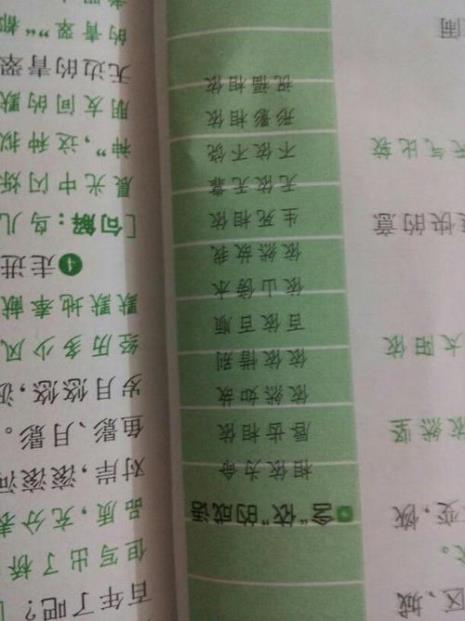 区、城
变，恢
依然坚
太阳依
快的意
天气比较
闹
含“依”的成语
相依为命
唇齿相依
依然如故
依依惜别
百依百顺
依山傍水
依然故我
生死相依
无依无靠
不依不饶
形影相依
祸福相依
百年了吧？
但写出了桥
品质，充分表
对岸，滚滚河
鱼影、月影。
岁月悠悠，波
经历多少风
默默地奉献
1 走进
[句解：鸟儿
晨光中闪烁
神”，这种拟
朋友间的默
无边的青翠
的青翠”“都